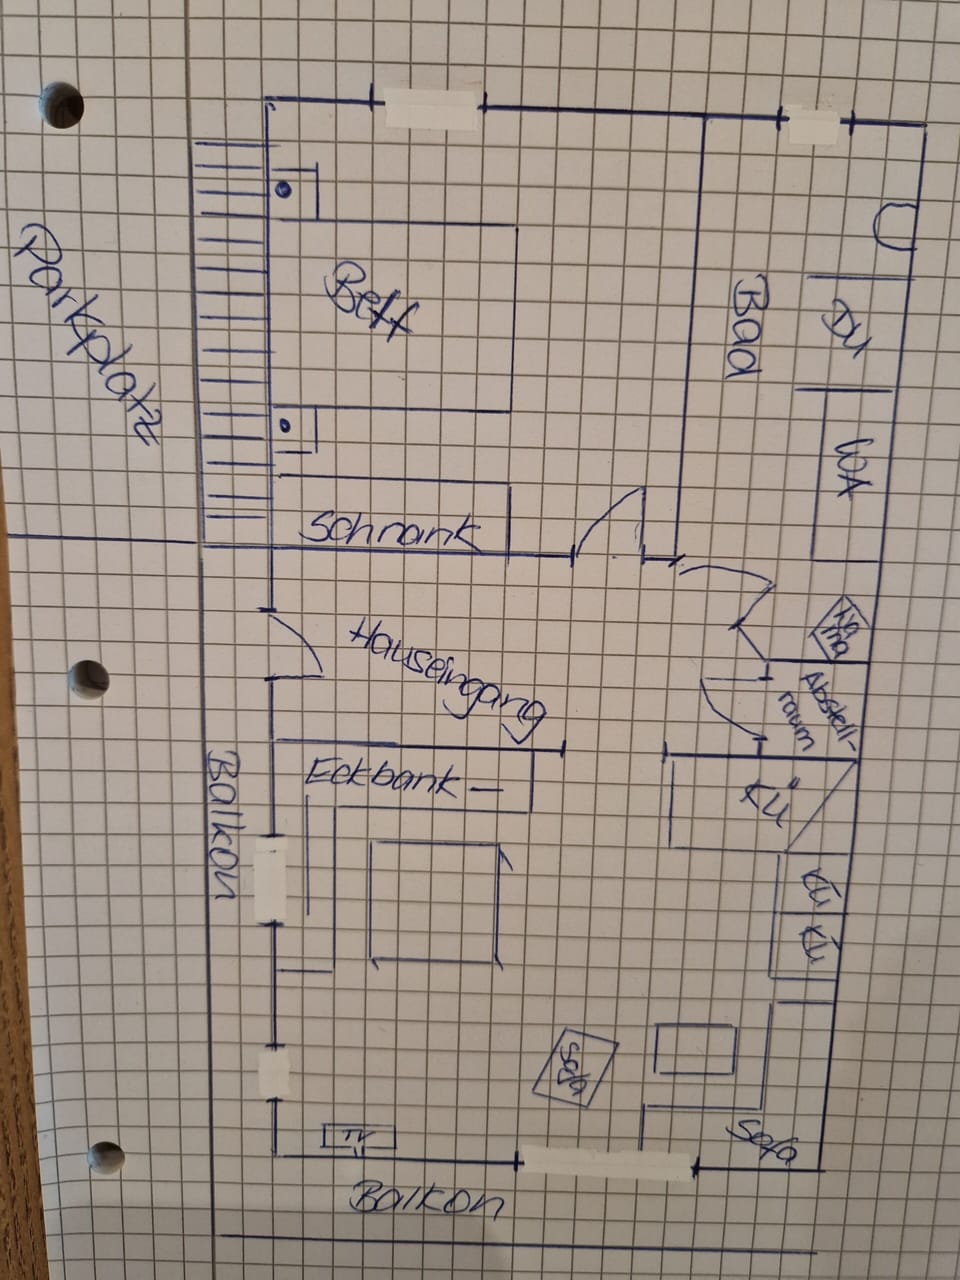 Parkplatz
Bett
Bad
DU
WA
Schrank
Hauseingang
Abstell-
raum
Eckbank
KÜ
KÜ
KÜ
Balkon
Sofa
Sofa
TV
Balkon